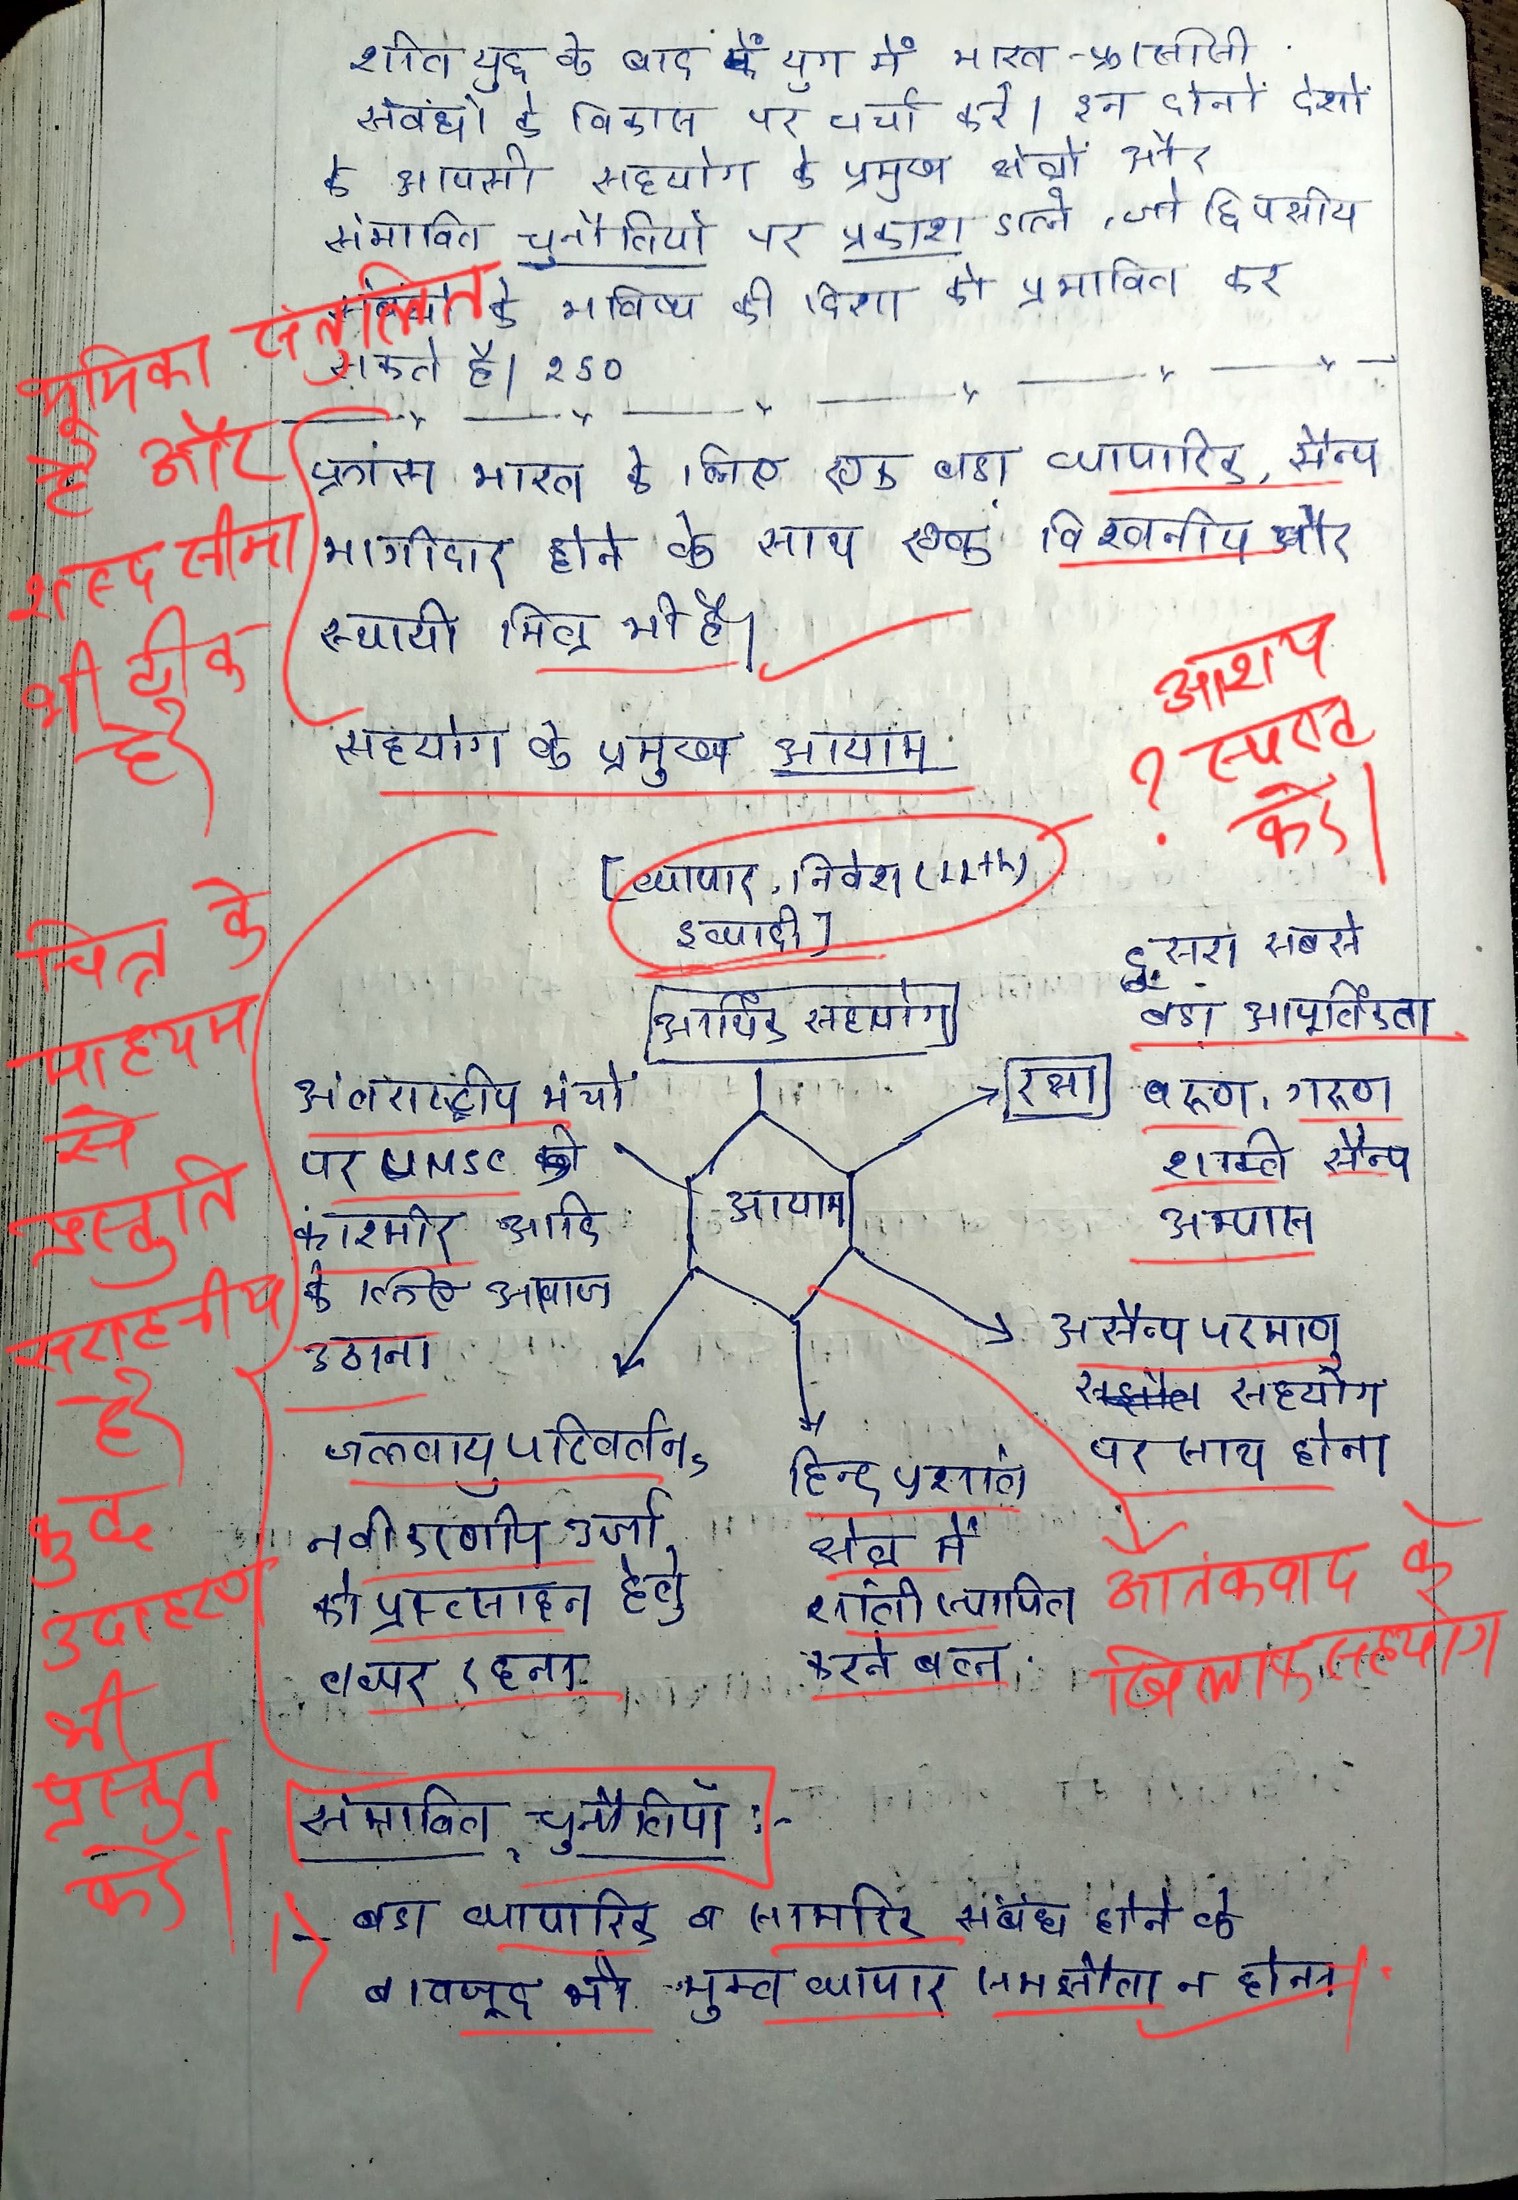 शीत युद्ध के बाद के युग में भारत-फ्रांसीसी
संबंधों के विकास पर चर्चा करें। इन दोनों देशों
के आपसी सहयोग के प्रमुख क्षेत्रों और
संभावित चुनौतियों पर प्रकाश डाले, जो द्विपक्षीय
संबंधों के भविष्य की दिशा को प्रभावित कर
सकते है। 250
भूमिका संतुलित
है और
शब्द सीमा
भी ठीक
है।
फ्रांस भारत के लिए एक बडा व्यापारिक, सैन्य
भागीदार होने के साथ एक विश्वनीय और
स्थायी मित्र भी है।
सहयोग के प्रमुख आयाम
आशय
? स्पष्ट
करें।
[व्यापार, निवेश (11th)
इत्यादी]
आर्थिक सहयोग
चित्र के
माध्यम
से
प्रस्तुति
सराहनीय
है।
कुछ
उदाहरण
भी
प्रस्तुत
करें।
दूसरा सबसे
बडा आपूर्तिकर्ता
रक्षा
वरूण, गरूण
शक्ति सैन्य
अभ्यास
अंतराष्ट्रीय मंचों
पर UNSC को
काश्मीर आदि
के लिए आवाज
उठाना
आयाम
असैन्य परमाणु
सहयोग
पर साथ होना
जलवायु परिवर्तन,
नवीकरणीय उर्जा,
को प्रोत्साहन हेतु
तत्पर रहना
हिन्द प्रशांत
क्षेत्र में
शांती स्थापित
करने वाला
आतंकवाद के
खिलाफ सहयोग
संभावित चुनौतियाँ :-
1) बडा व्यापारिक व सामरिक संबंध होने के
बावजूद भी मुक्त व्यापार समझौता न होना।